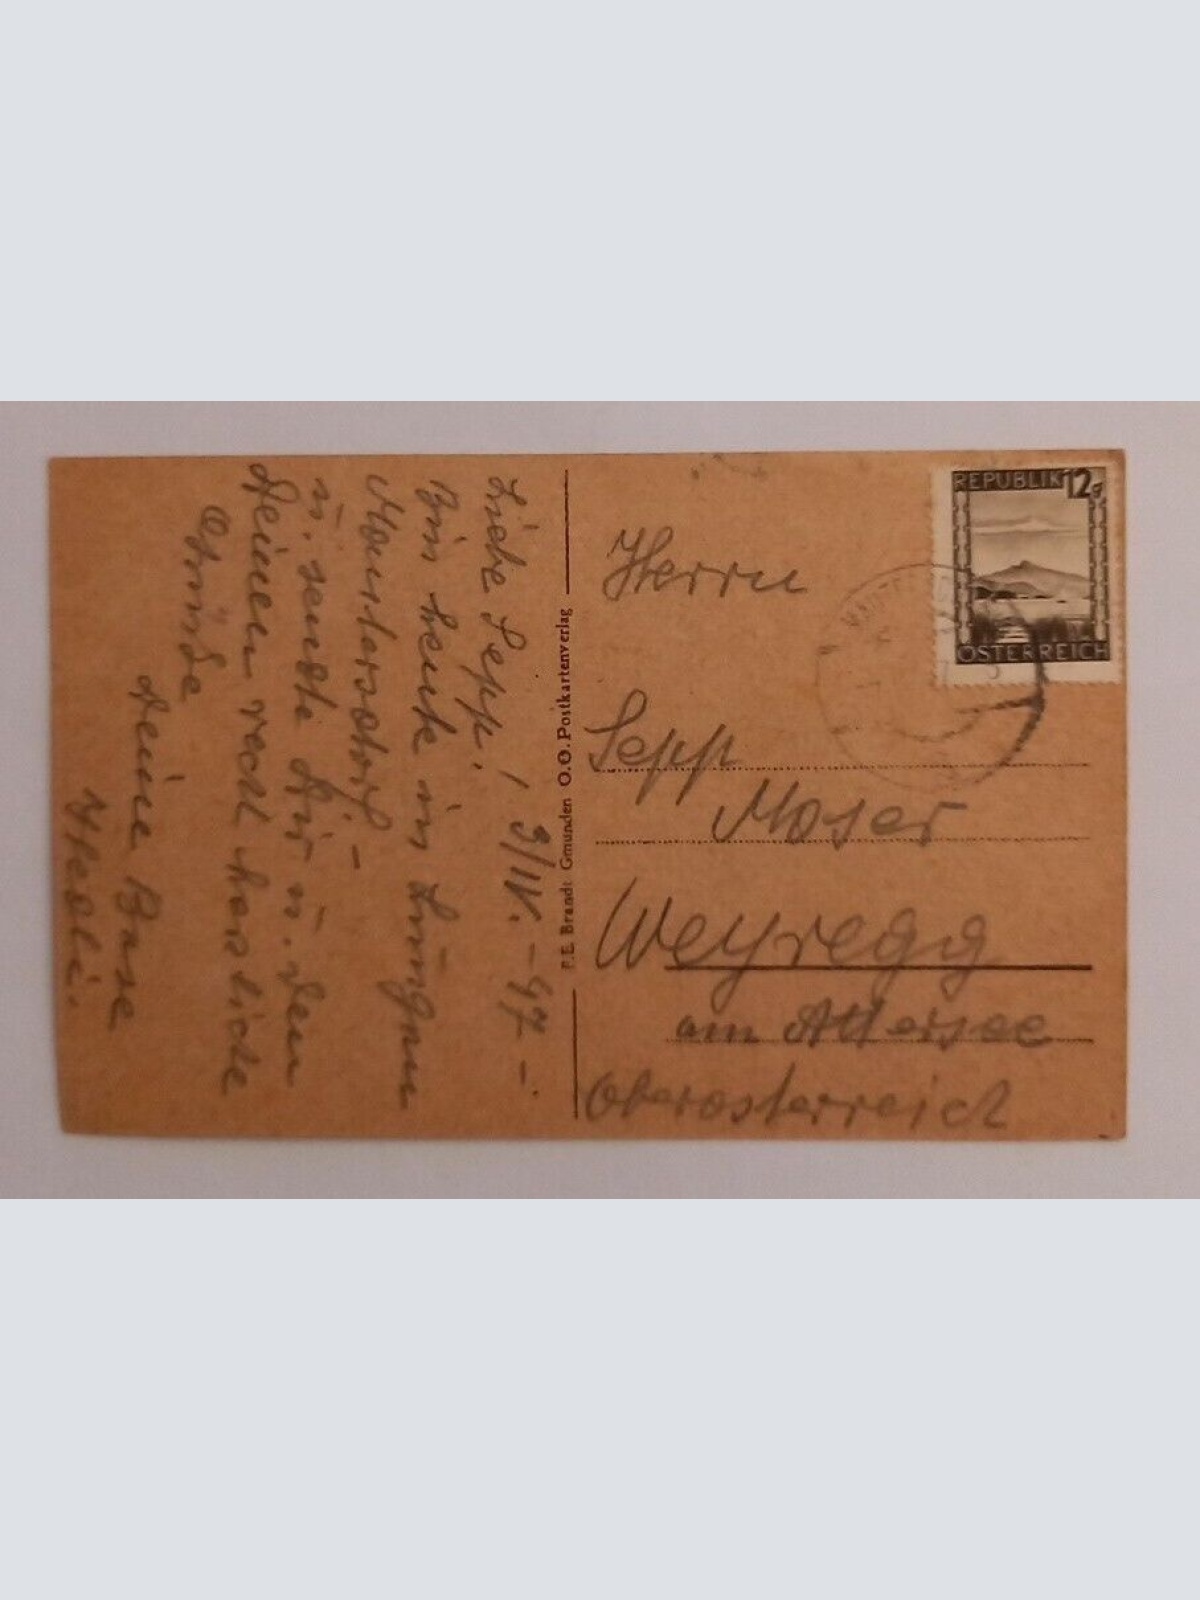 Liebe Sepp! 9/IV. - 47 -
Bin heute im Lungau
Mautersdorf -
u. sende Dir u. den
Deinen recht herzliche
Grüsse
Deine Base
F.E. Brandt Gmunden O.O. Postkartenverlag
REPUBLIK 12g
ÖSTERREICH
Herrn
Sepp
Moser
Weyregg
am Attersee
Oberösterreich